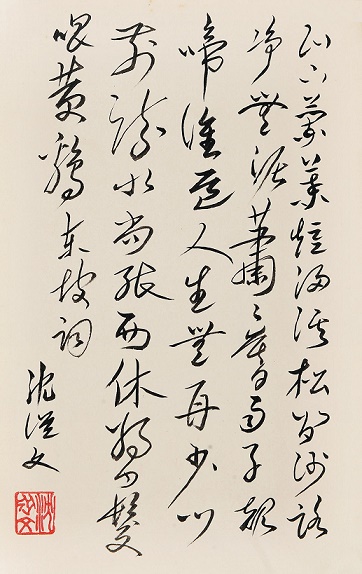 山下蘭葉短浸溪松間沙路
淨無泥蕭々暮雨子規
啼誰道人生無再少門
前流水尚能西休將白髮
唱黃鷄東坡詞
沈從文
沈從文